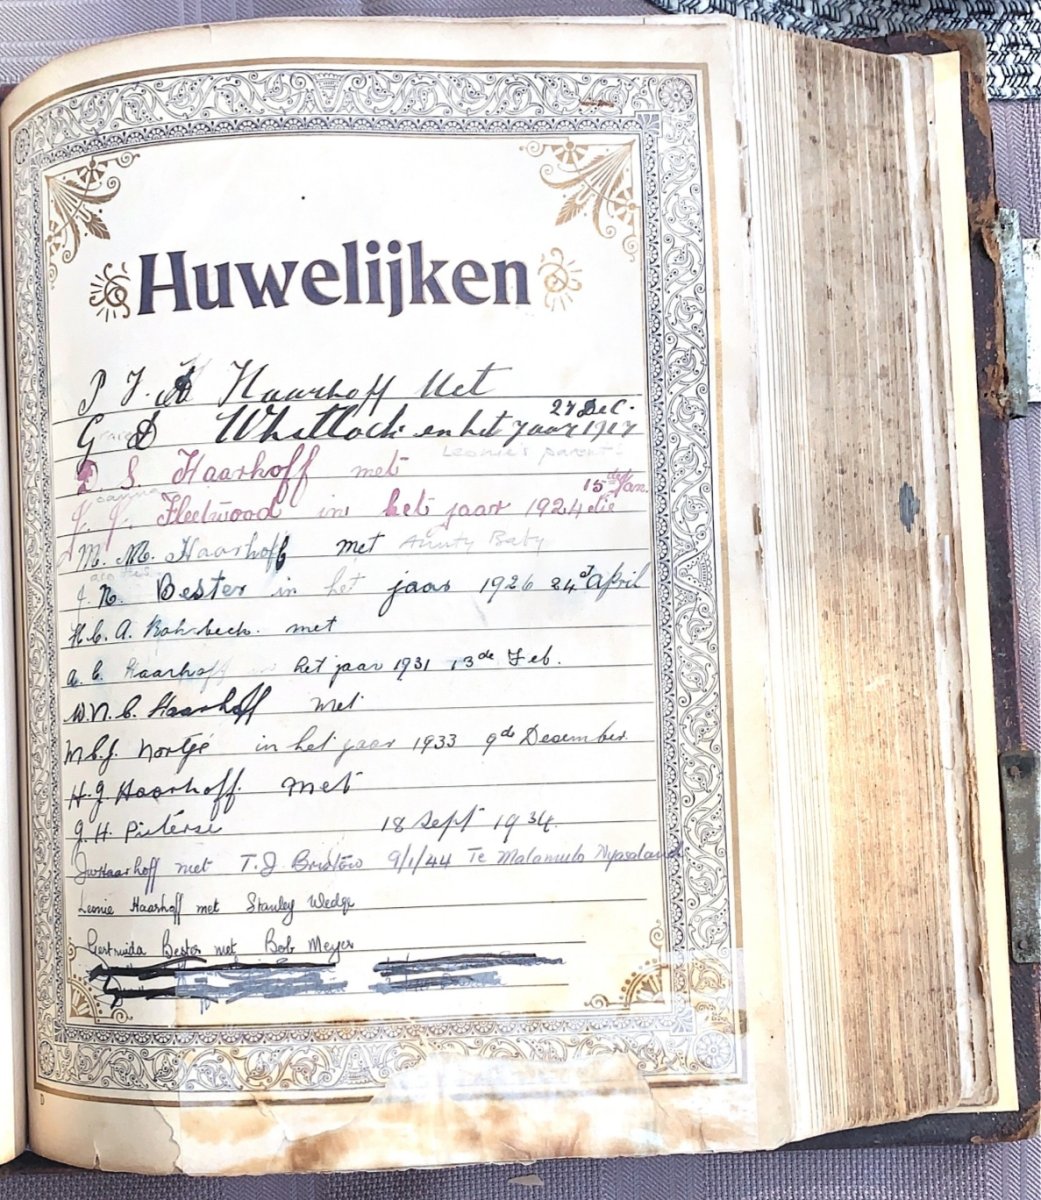 Huwelijken
P J. A Haarhoff Met
27 Dec.
G D Whitlock en het Jaar 1917
Leonie's parents
S. Haarhoff met
15 de Jan.
J. J. Fleetwood in het jaar 1924 die
M. M. Haarhoff met Aunty Baby
J. N. Bester in het jaar 1926 24st April
H. C. A. met
A. C. Haarhoff in het jaar 1931 13de Feb.
W. N. C. Haarhoff met
M. C. J. Nortjé in het jaar 1933 9de Desember
H. J. Haarhoff. met
J. H. Pieterse 18 Sept 1934.
JW Haarhoff met T. J Bristow 9/1/44 Te Malamulo Nyasaland
Leonie Haarhoff met Stanley Wedge
Gertruida Bester met Bob Meyer
D